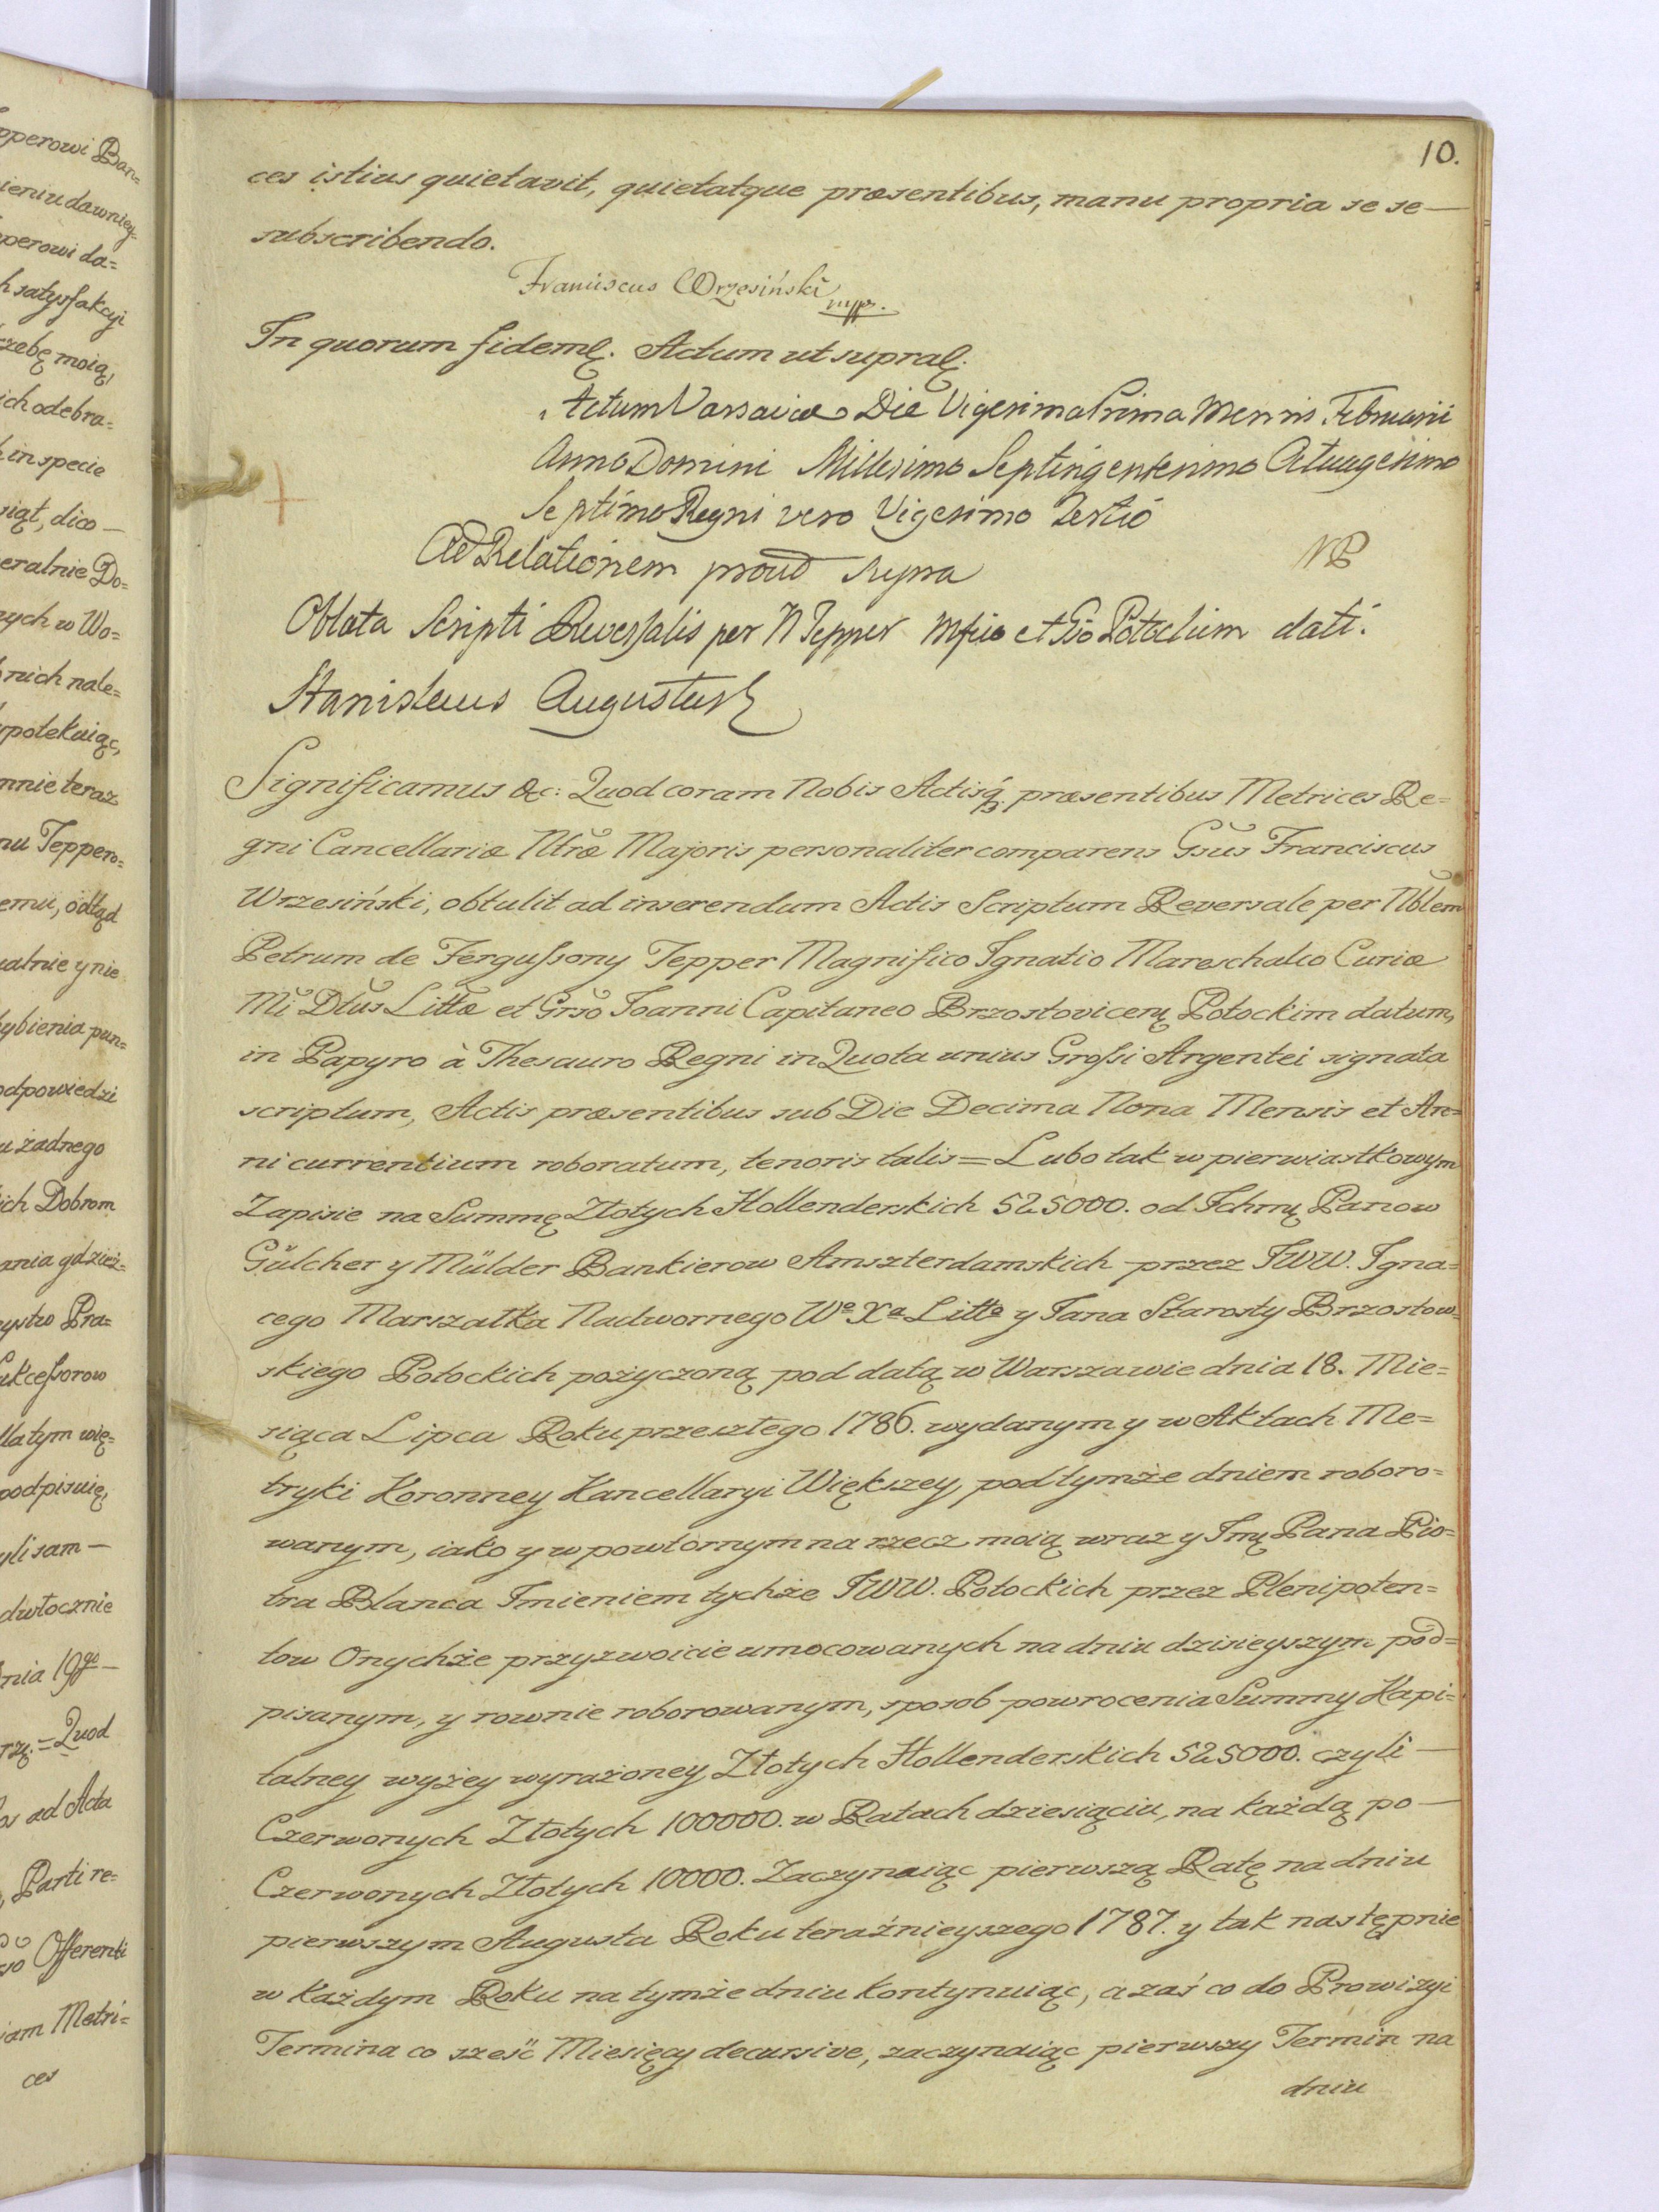 10.
ces istius quietavit, quietatque præsentibus, manu propria se se —
subscribendo.
Franciscus Wrzesiński
mpp.
In quorum fidem &c. Actum ut supra &c.
Actum Varsaviæ Die Vigesima Prima Mensis Februarii
Anno Domini Millesimo Septingentesimo Octuagesimo
Septimo Regni vero Vigesimo Tertio
Ad Relationem prout supra
NB
Oblata Scripti Reversalis per N Tepper Mfco et Gso Potockim dati.
Stanislaus Augustus &
Significamus &c: Quod coram Nobis Actisq3 præsentibus Metrices Re=
gni Cancellariæ Ntræ Majoris personaliter comparens Gsus Franciscus
Wrzesiński, obtulit ad inserendum Actis Scriptum Reversale per Nblem
Petrum de Fergussony Tepper Magnifico Ignatio Mareschalco Curiæ
Mi Dtus Littæ et Grso Joanni Capitaneo Brzostovicen Potockim datum,
in Papyro à Thesauro Regni in Quota unius Grossi Argentei signata
scriptum, Actis præsentibus sub Die Decima Nona Mensis et An=
ni currentium roboratum, tenoris talis = Lubo tak w pierwiastkowym
Zapisie na Summę Złotych Hollenderskich 525000. od Ichmę Panow
Gülcher y Mülder Bankierow Amszterdamskich przez JWW. Igna=
cego Marszałka Nadwornego Wo Xa Litto y Jana Starosty Brzostow=
skiego Potockich pożyczoną pod datą w Warszawie dnia 18. Mie=
siąca Lipca Roku przeszłego 1786. wydanym y w Aktach Me=
tryki Koronney Kancellaryi Większey, pod tymże dniem roboro=
wanym, iako y w powtornym na rzecz moią wraz y Jmę Pana Pio=
tra Blanca Imieniem tychże JWW. Potockich przez Plenipoten=
tow Onychże przyzwoicie umocowanych na dniu dzisieyszym pod=
pisanym, y rownie roborowanym, sposob powrocenia Summy Kapi=
talney wyżey wyrażoney Złotych Hollenderskich 525000. czyli —
Czerwonych Złotych 100000. w Ratach dziesiąciu, na każdą po —
Czerwonych Złotych 10000. Zaczynaiąc pierwszą Ratę na dniu
pierwszym Augusta Roku teraźnieyszego 1787. y tak następnie
w każdym Roku na tymże dniu kontynuiąc, a zaś co do Prowizyi
Termina co sześć Miesięcy decursive, zaczynaiąc pierwszy Termin na
dniu